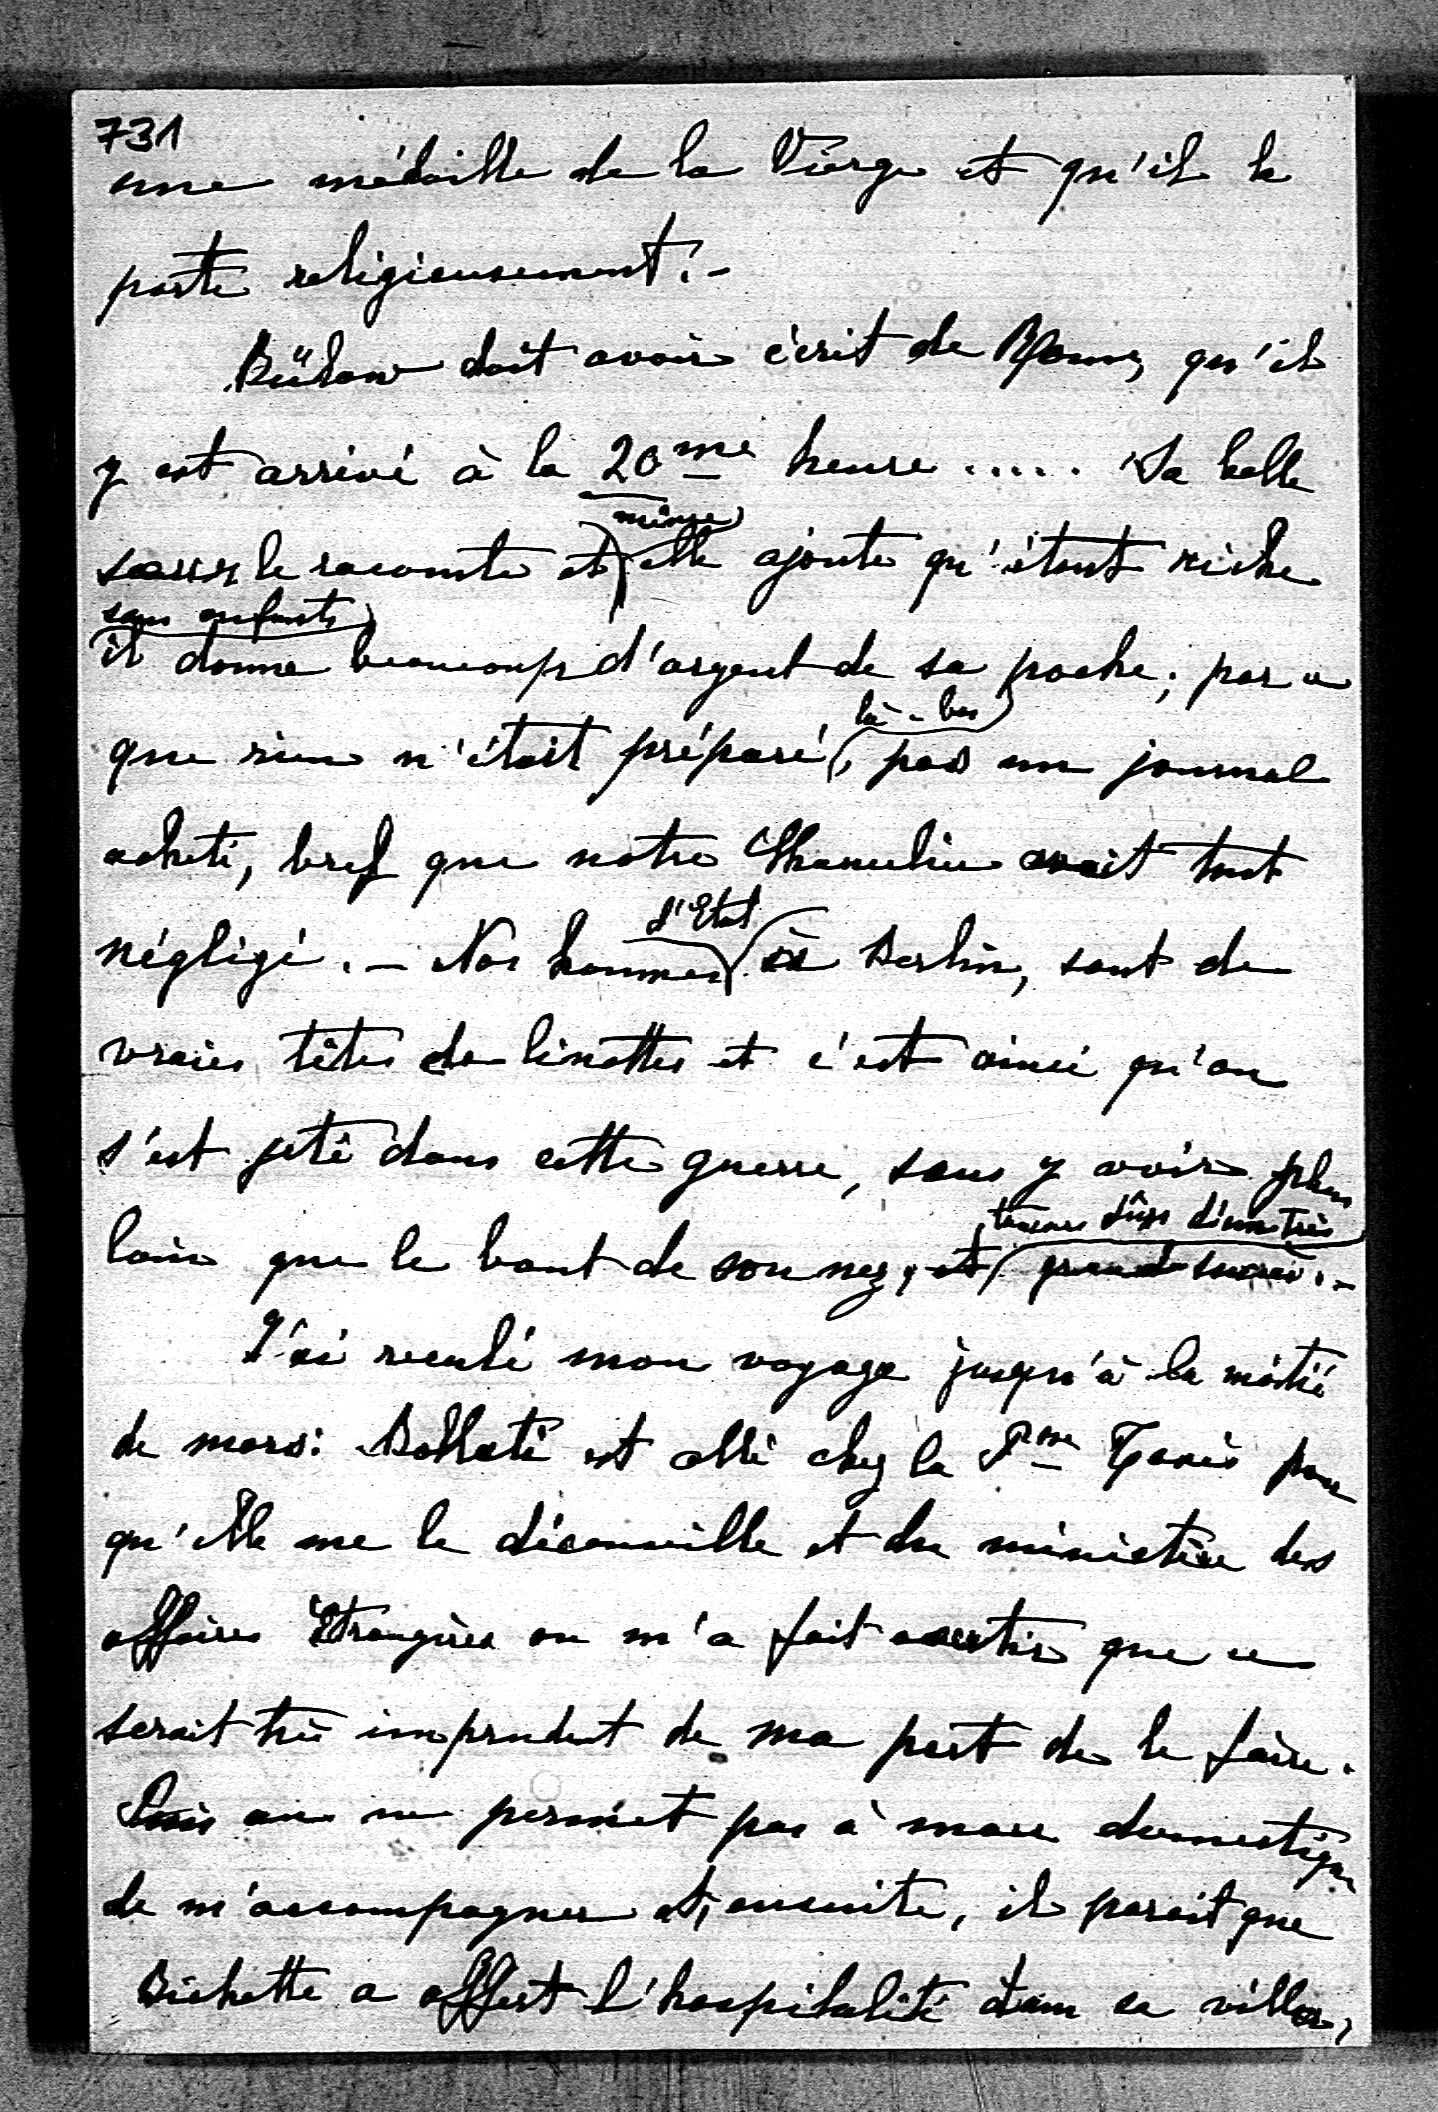 731
une médaille de la Vierge et qu'il la
porte religieusement.-
Bülow doit avoir écrit de Rome, qu'il
y est arrivé à la 20me heure ..... Sa belle
même
sœur le raconte et elle ajoute qu'étant riche
sans enfants
il donne beaucoup d'argent de sa poche; par ce
là-bas
que rien n'était préparé, pas un journal
acheté, bref que notre Chancelier avait tout
d'Etat
négligé. - Nos hommes à Berlin, sont de
vraies têtes de linottes et c'est ainsi qu'on
s'est jeté dans cette guerre, sans y voir plus
sûrs d'un très
loin que le bout de son nez, et grand succès.-
J'ai reculé mon voyage jusqu'à la moitié
de mars: Bollati est allé chez la Pme Taxis pour
qu'elle me le déconseille et du ministère des
affaires Etrangères on m'a fait avertir que ce
serait très imprudent de ma part de le faire.
Puis on ne permet pas à mon domestique
de m'accompagner et, ensuite, il parait que
Bichette a offert l'hospitalité dans sa villa,